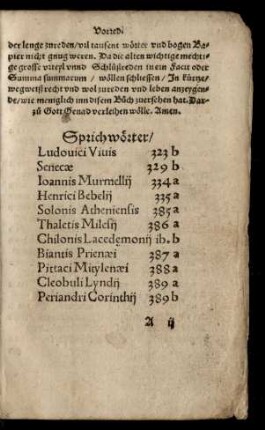 Vorred/
der lenge zureden/ vil tausent wörter vnd bogen Ba-
pier nicht gnug weren. Da die alten wichtige mechti-
ge grosse vrteyl vnnd Schlußreden in ein Facit oder
Summa summarum / wöllen schliessen / In kürtze/
wegweiß recht vnd wol zureden vnd leben anzeygen-
de/ wie meniglich inn disem Bůch zuersehen hat. Dar-
zů Gott Genad verleihen wölle. Amen.
Sprichwörter/
Ludouici Viuis 323 b
Senecæ 329 b
Ioannis Murmellij 334 a
Henrici Bebelij 335 a
Solonis Atheniensis 385 a
Thaletis Milesij 386 a
Chilonis Lacedęmonij ib. b
Biantis Prienæi 387 a
Pittaci Mitylenæi 388 a
Cleobuli Lyndij 389 a
Periandri Corinthij 389 b
A ij